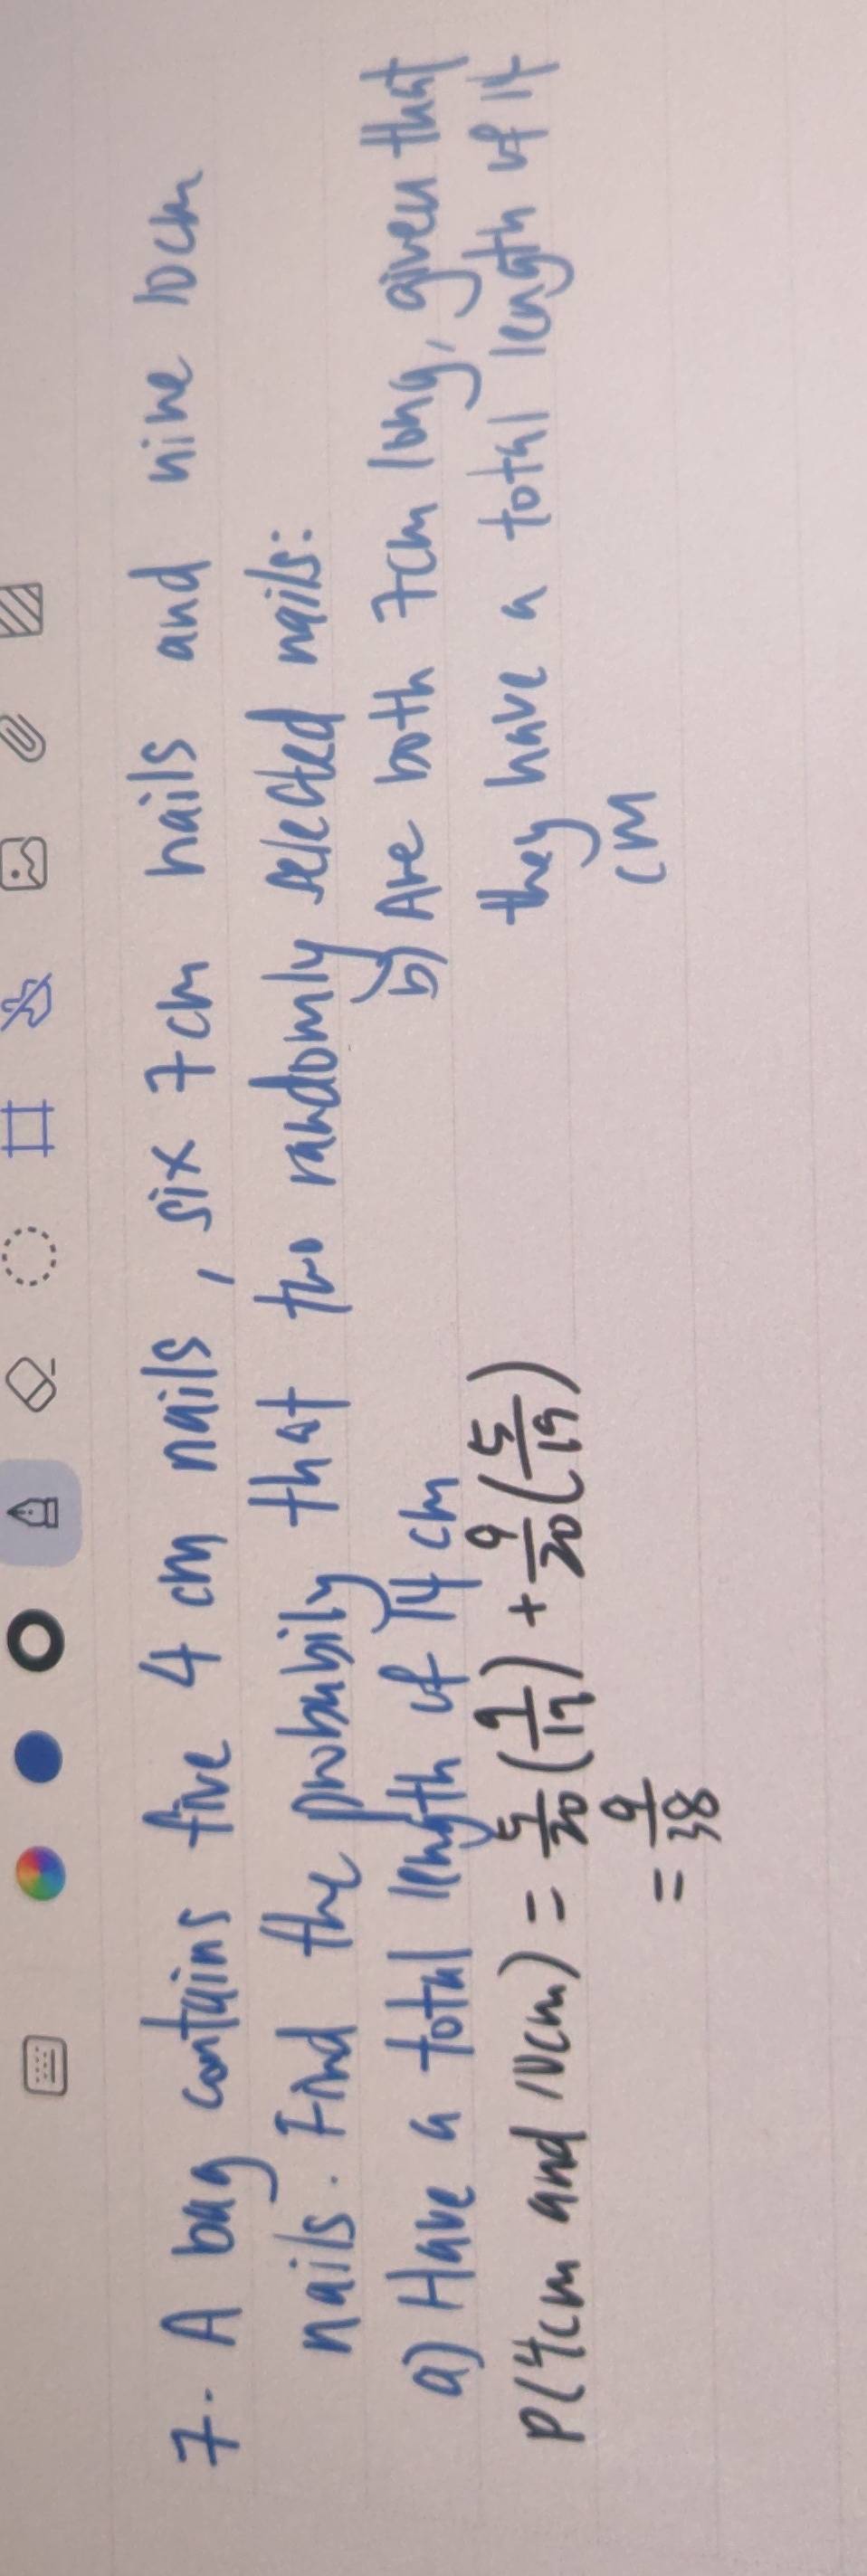 7. A bag contains five 4 cm nails, six 7cm nails and nine 10cm
nails. Find the probabily that two randomly selected nails:
a) Have a total length of 14 cm
P(4cm and 10cm) = 5/20 (9/19) + 9/20 (5/19)
= 9/38
b) Are both 7cm long, given that
they have a total length of 14
cm